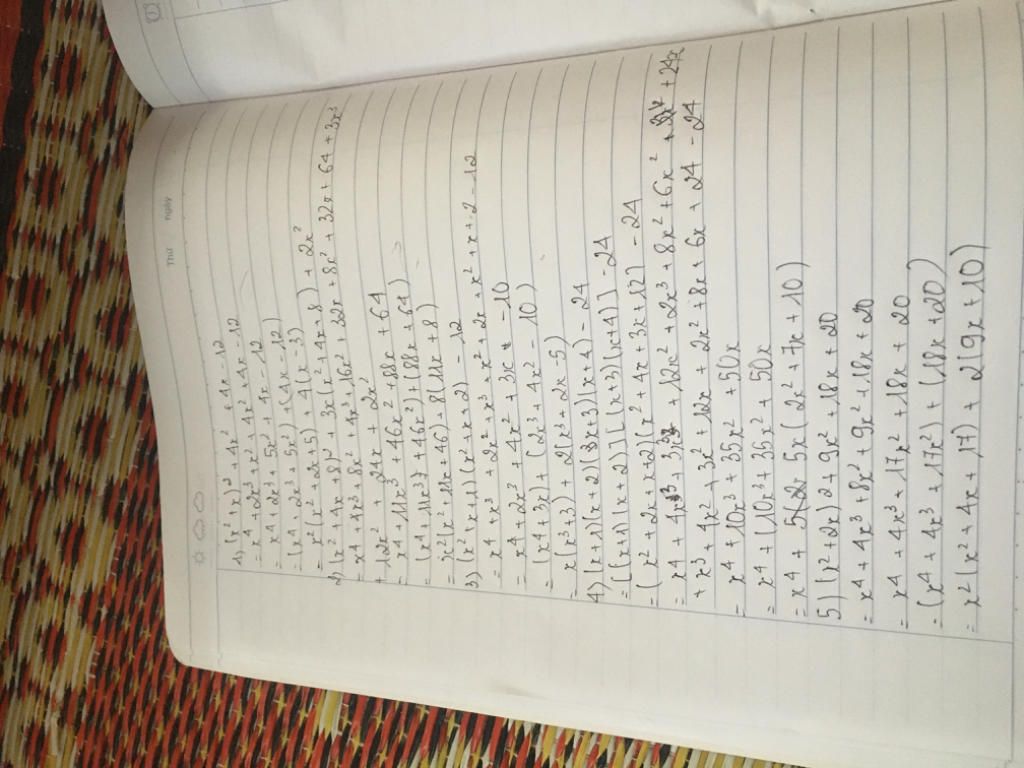 Thứ
Ngày
1) (x² + x)² + 4x² + 4x - 12
= x⁴ + 2x³ + x² + 4x² + 4x - 12
= x⁴ + 2x³ + 5x² + 4x - 12
= (x⁴ + 2x³ + 5x²) + (4x - 12)
= x²(x² + 2x + 5) + 4(x - 3)
2) (x² + 4x + 8)² + 3x(x² + 4x + 8) + 2x²
= x⁴ + 4x³ + 8x² + 4x³ + 16x² + 32x + 8x² + 32x + 64 + 3x³
+ 12x² + 24x + 2x²
= x⁴ + 11x³ + 46x² + 88x + 64
= (x⁴ + 11x³ + 46x²) + (88x + 64)
= x²(x² + 11x + 46) + 8(11x + 8)
3) (x² + x + 1)(x² + x + 2) - 12
= x⁴ + x³ + 2x² + x³ + x² + 2x + x² + x + 2 - 12
= x⁴ + 2x³ + 4x² + 3x - 10
= (x⁴ + 3x) + (2x³ + 4x² - 10)
= x(x³ + 3) + 2(x³ + 2x - 5)
4) (x + 1)(x + 2)(x + 3)(x + 4) - 24
= [(x + 1)(x + 2)][(x + 3)(x + 4)] - 24
= (x² + 2x + x + 2)(x² + 4x + 3x + 12) - 24
= x⁴ + 4x³ + 3x³ + 12x² + 2x³ + 8x² + 6x² + 24x
+ x³ + 4x² + 3x² + 12x + 2x² + 8x + 6x + 24 - 24
= x⁴ + 10x³ + 35x² + 50x
= x⁴ + (10x³ + 35x² + 50x
= x⁴ + 5x(2x² + 7x + 10)
5) (x² + 2x)2 + 9x² + 18x + 20
= x⁴ + 4x³ + 8x² + 9x² + 18x + 20
= x⁴ + 4x³ + 17x² + 18x + 20
= (x⁴ + 4x³ + 17x²) + (18x + 20)
= x²(x² + 4x + 17) + 2(9x + 10)